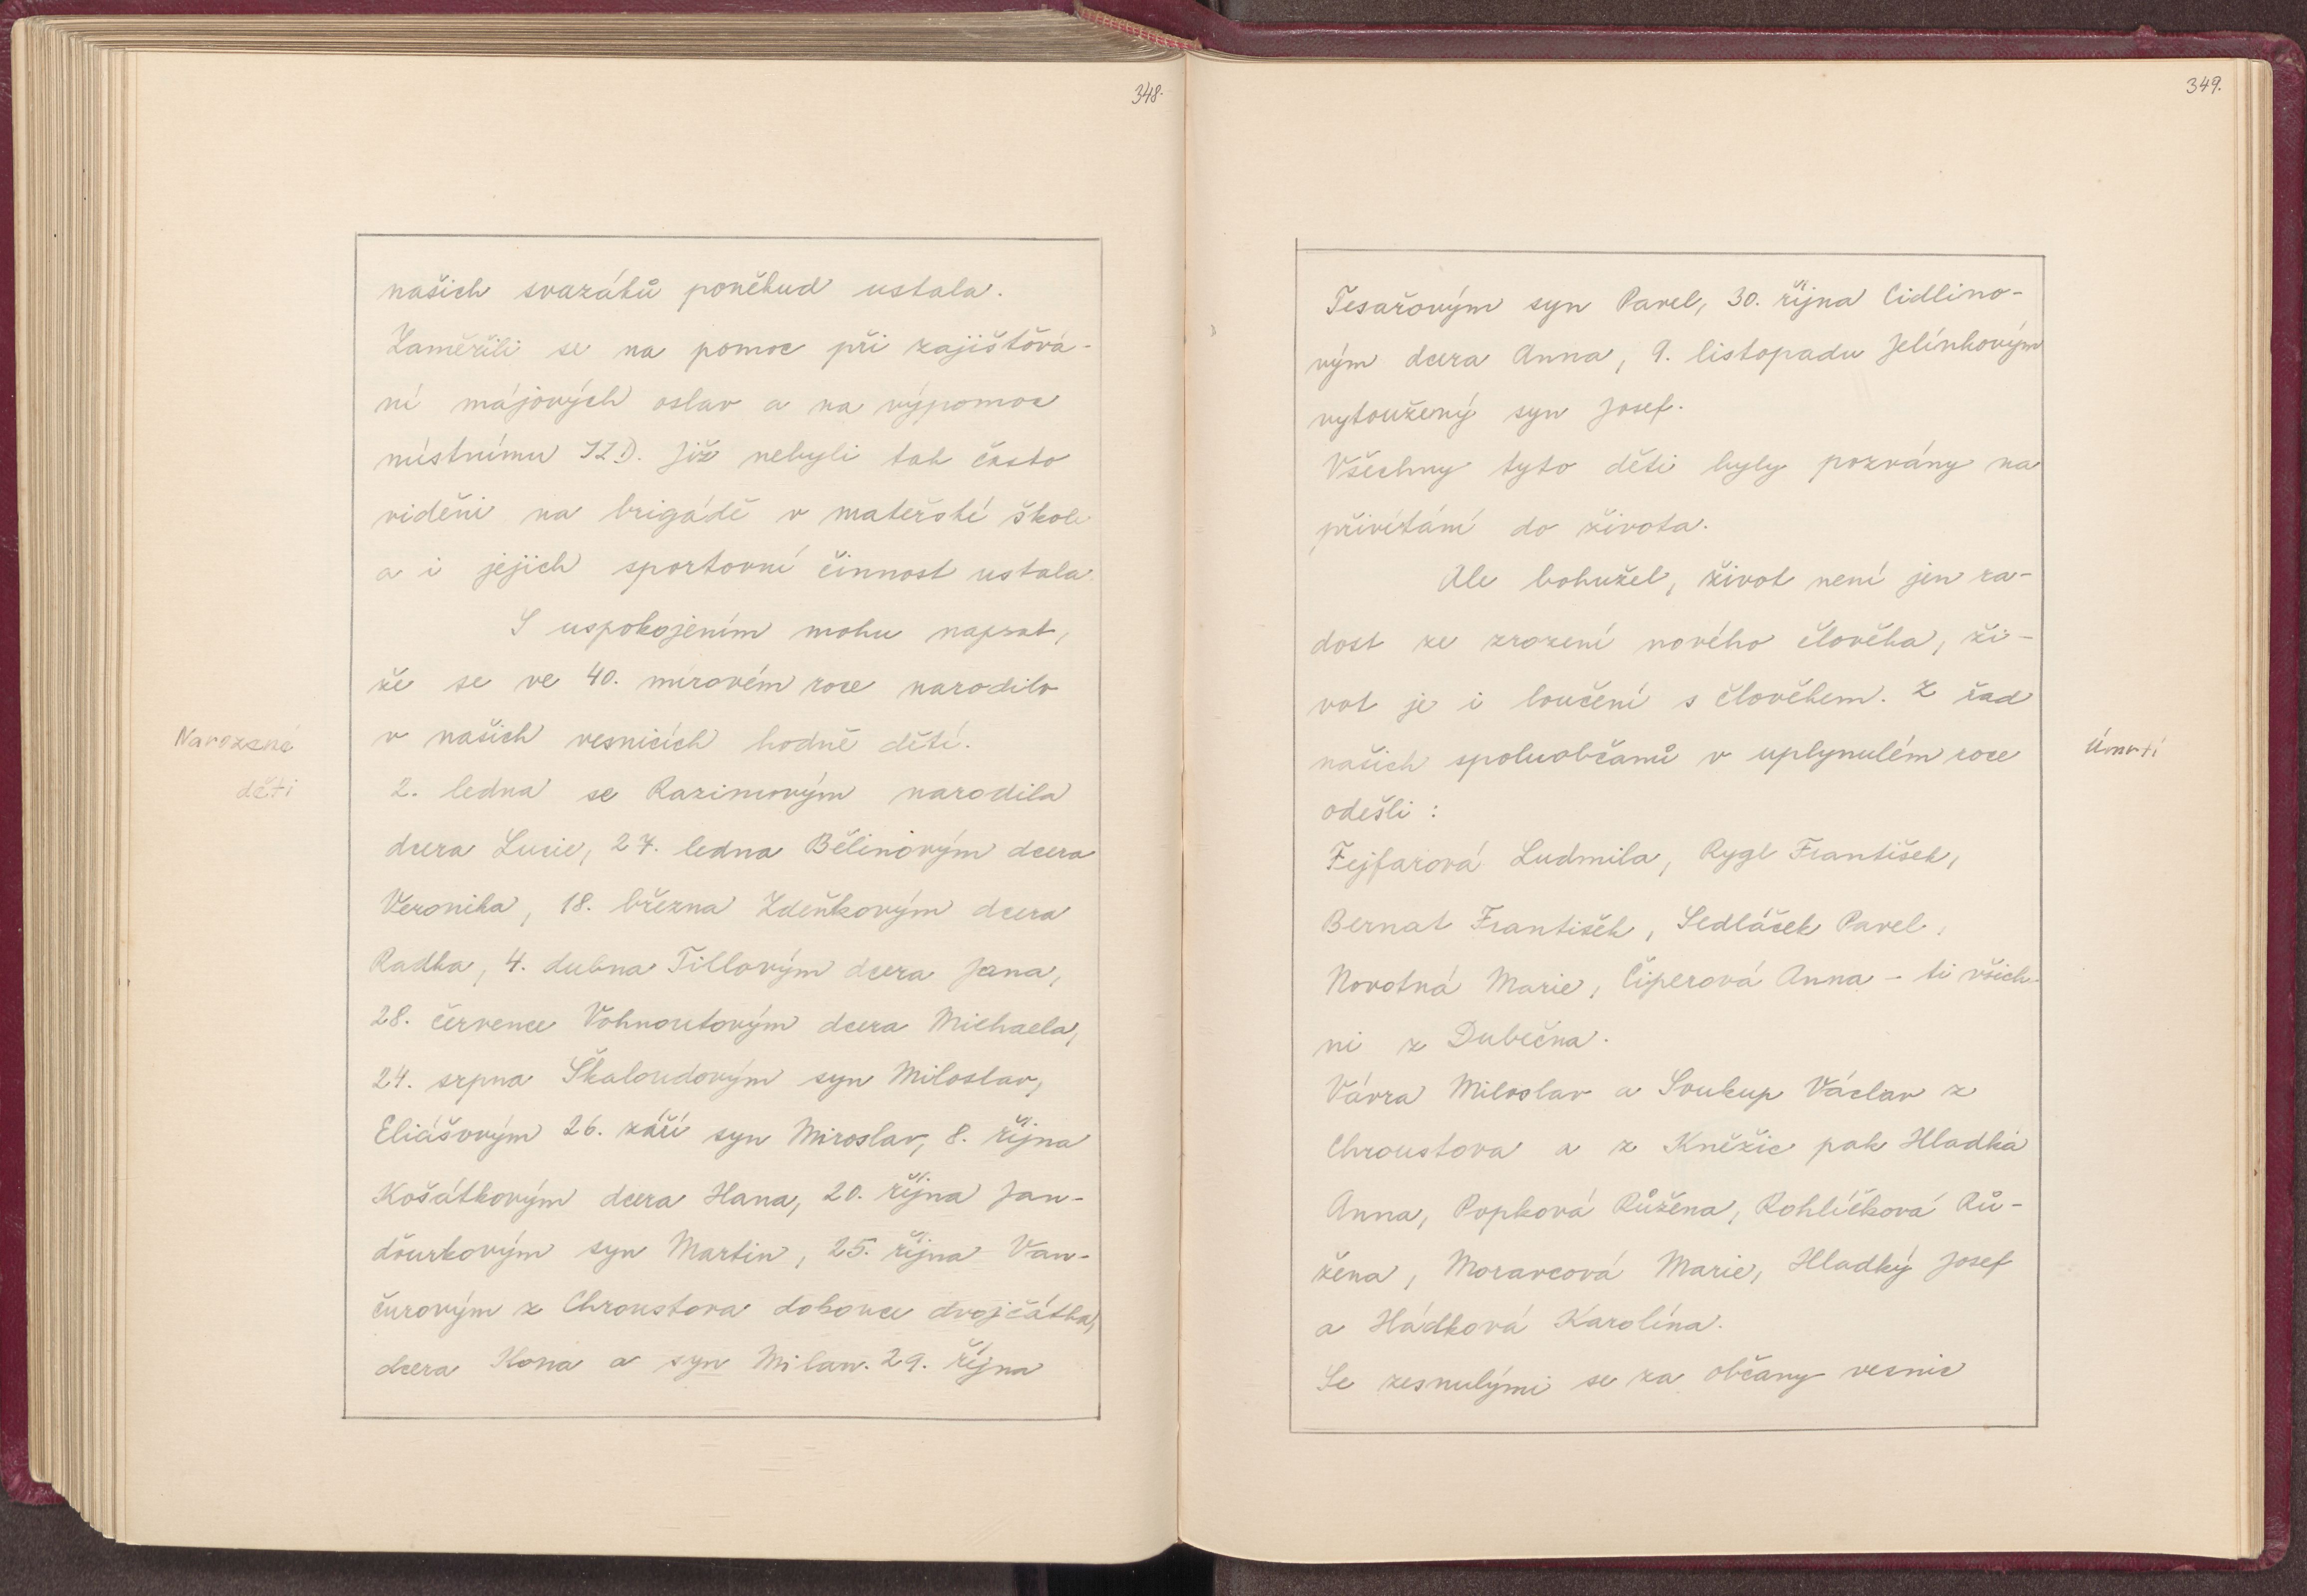 348.
našich svazáků poněkud ustala.
Zaměřili se na pomoc při zajištová-
ní májových oslav a na výpomoc
místnímu JZD. Již nebyli tak často
viděni na brigádě v mateřské škole
a i jejich sportovní činnost ustala.
S uspokojením mohu napsat,
že se ve 40. mírovém roce narodilo
v našich vesnicích hodně dětí.
Narozené
děti
2. ledna se Razimovým narodila
dcera Lucie, 27. ledna Bělinovým dcera
Veronika, 18. března Zdeňkovým dcera
Radka, 4. dubna Tillovým dcera Jana,
28. července Vohnoutovým dcera Michaela,
24. srpna Škaloudovým syn Miloslav,
Eliášovým 26. září syn Miroslav, 8. října
Košátkovým dcera Hana, 20. října Jan-
ďourkovým syn Martin, 25. října Van-
čurovým z Chroustova dokonce dvojčátka,
dcera Ilona a syn Milan. 29. října
349.
Tesařovým syn Pavel, 30. října Cidlino-
vým dcera Anna, 9. listopadu Jelínkovým
vytoužený syn Josef.
Všechny tyto děti byly pozvány na
přivítání do života.
Ale bohužel, život není jen ra-
dost ze zrození nového člověka, ži-
vot je i loučení s člověkem. Z řad
našich spoluobčanů v uplynulém roce
Úmrtí
odešli :
Fejfarová Ludmila, Rygl František,
Bernat František, Sedláček Pavel,
Novotná Marie, Čiperová Anna - ti všich-
ni z Dubečna.
Vávra Miloslav a Soukup Václav z
Chroustova a z Kněžic pak Hladká
Anna, Popková Růžena, Rohlíčková Rů-
žena, Moravcová Marie, Hladký Josef
a Hádková Karolína.
Se zesnulými se za občany vesnic